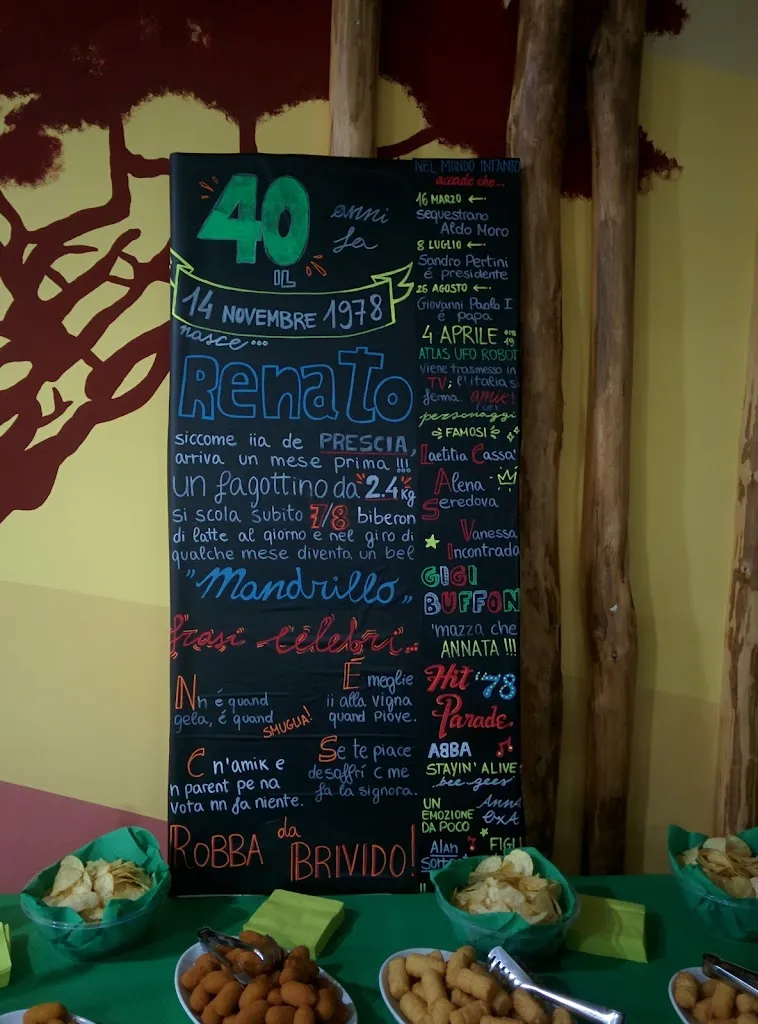 40 anni
fa
IL
14 NOVEMBRE 1978
nasce...
Renato
siccome iia de PRESCIA,
arriva un mese prima !!!
un fagottino da "2.4" kg
si scola subito 7/8 biberon
di latte al giorno e nel giro di
qualche mese diventa un bel
"Mandrillo"
frasi celebri...
Nn é quand
gela, é quand SMUGLIA!
É meglie
ii alla vigna
quand piove.
C n'amik e
n parent pe na
vota nn fa niente.
Se te piace
desaffri c me
fa la signora.
ROBBA da BRIVIDO!
NEL MONDO INTANTO
accade che...
16 MARZO
sequestrano
Aldo Moro
8 LUGLIO
Sandro Pertini
é presidente
26 AGOSTO
Giovanni Paolo I
é papa
4 APRILE ore 19
ATLAS UFO ROBOT
viene trasmesso in
TV; l'italia si
ferma.
personaggi
FAMOSI
Laetitia Casta
Alena
Seredova
Vanessa
Incontrada
GIGI
BUFFON
'mazza che
ANNATA !!!
Hit '78
Parade.
ABBA
STAYIN' ALIVE
bee-gees
UN
EMOZIONE
DA POCO
Anna
oxA
Alan
FIGLI